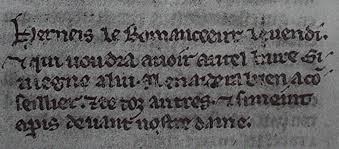 Herneis le Romanceeur le vendi.
⁊ qui voudra auoir autel liure si
viegne a lui. il en aidera bien a co
seillier. ⁊ de toz autres. ⁊ si meint
a paris deuant nostre dame.